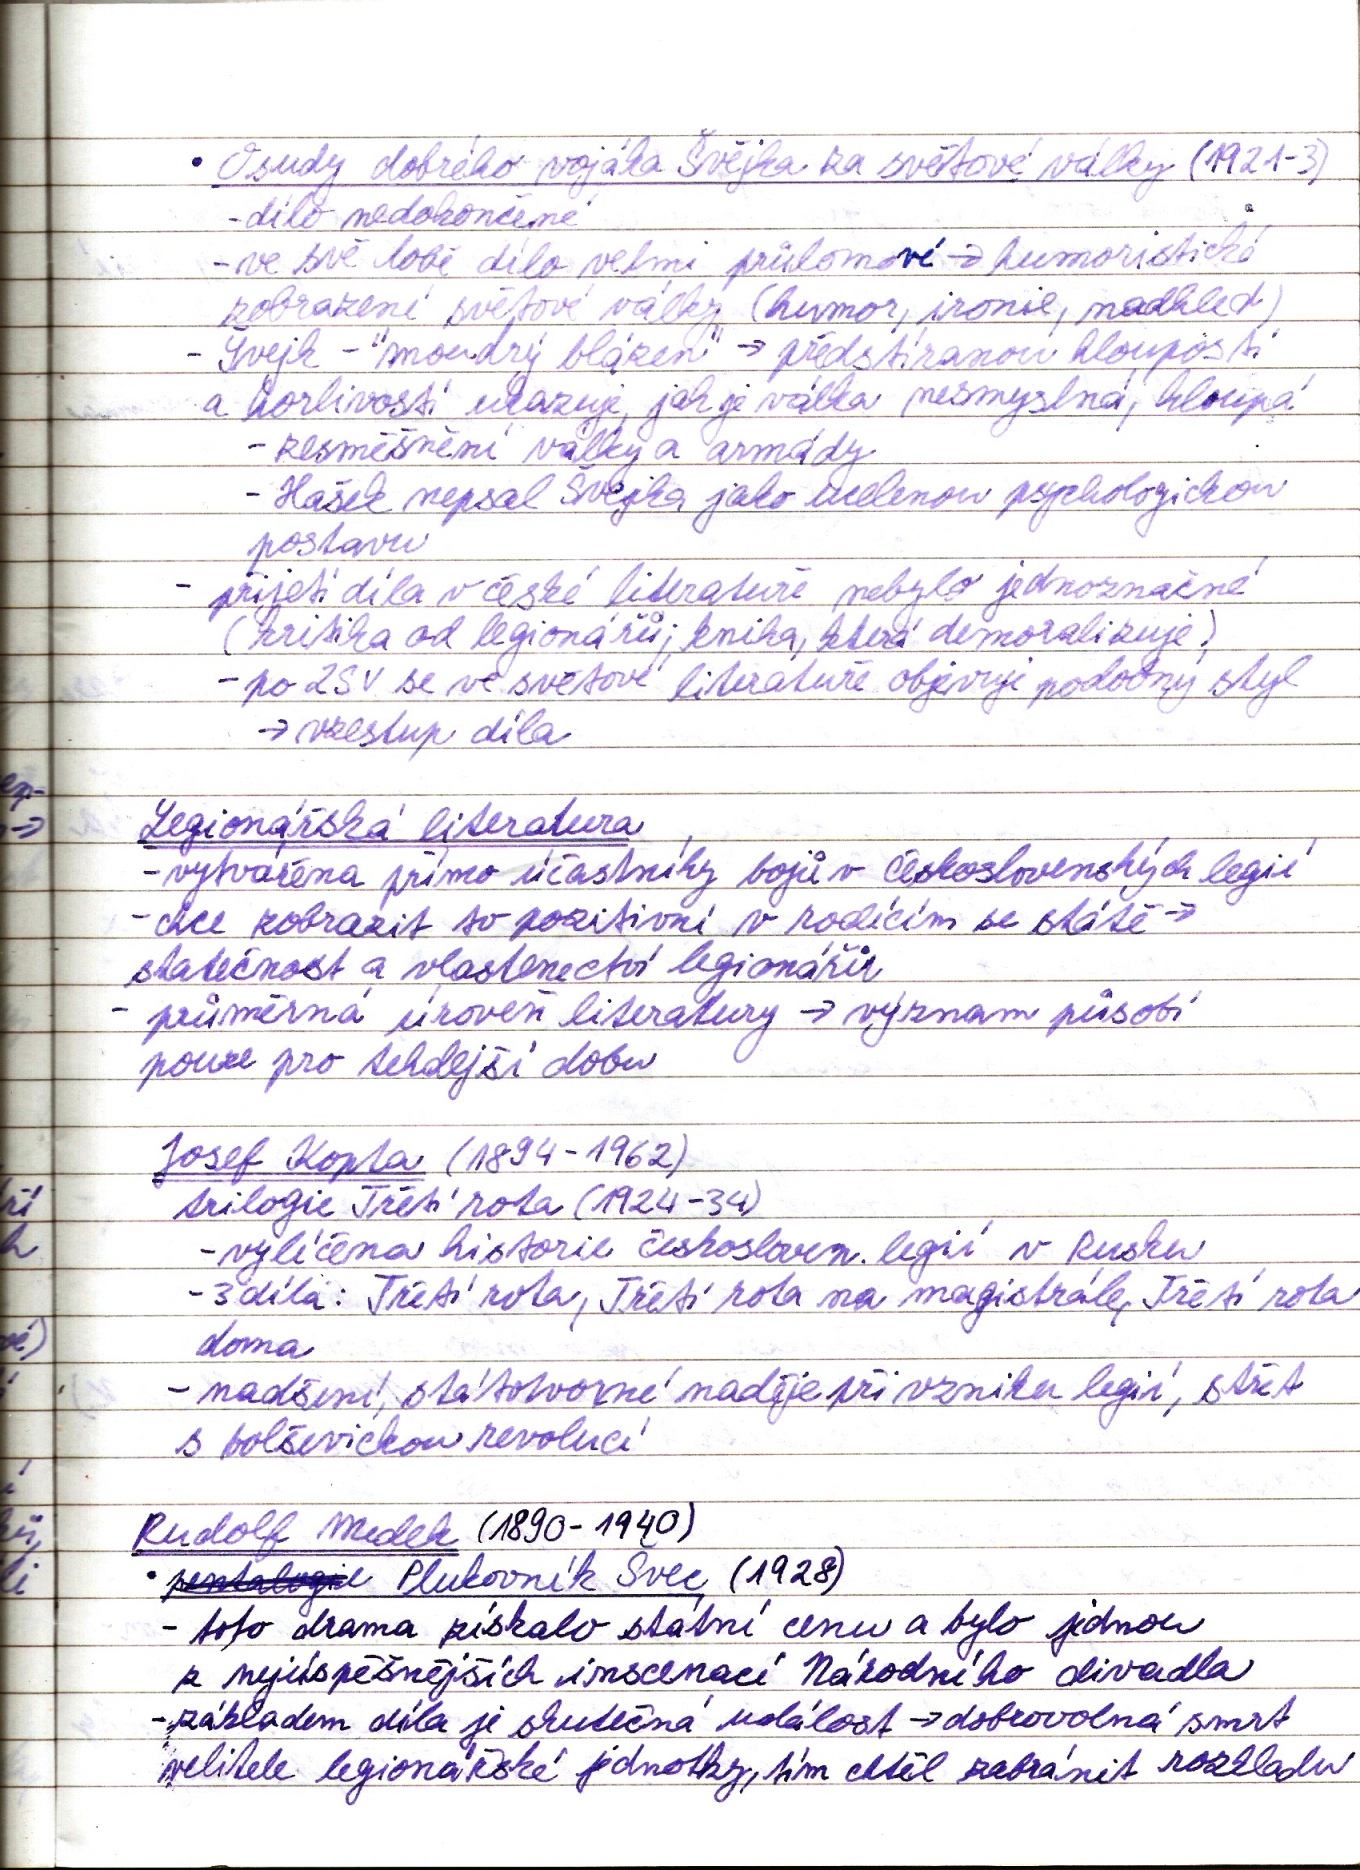 • Osudy dobrého vojáka Švějka za světové války (1921-3)
- dílo nedokončené
- ve své době dílo velmi průlomové → humoristické
zobrazení světové války (humor, ironie, nadhled)
- Švejk - "moudrý blázen" → předstíranou hloupostí
a horlivostí ukazuje, jak je válka nesmyslná, hloupá
- zesměšnění války a armády
- Hašek nepsal Švejka jako ucelenou psychologickou
postavu
- přijetí díla v české literatuře nebylo jednoznačné
(kritika od legionářů; kniha, která demoralizuje)
- po 2SV se ve světové literatuře objevuje podobný styl
→ vzestup díla
Legionářská literatura
- vytvářena přímo účastníky bojů v československých legií
- chce zobrazit to pozitivní v rodícím se státě →
statečnost a vlastenectví legionářů
- průměrná úroveň literatury → význam působí
pouze pro tehdejší dobu
Josef Kopta (1894-1962)
trilogie Třetí rota (1924-34)
- vylíčena historie českosloven. legií v Rusku
- 3 díla: Třetí rota, Třetí rota na magistrále, Třetí rota
doma
- nadšení, státotvorné naděje při vzniku legií, střet
s bolševickou revolucí
Rudolf Medek (1890-1940)
• pentalogie Plukovník Švec (1928)
- toto drama získalo státní cenu a bylo jednou
z nejúspěšnějších inscenací Národního divadla
- základem díla je skutečná událost → dobrovolná smrt
velitele legionářské jednotky, tím chtěl zabránit rozkladu